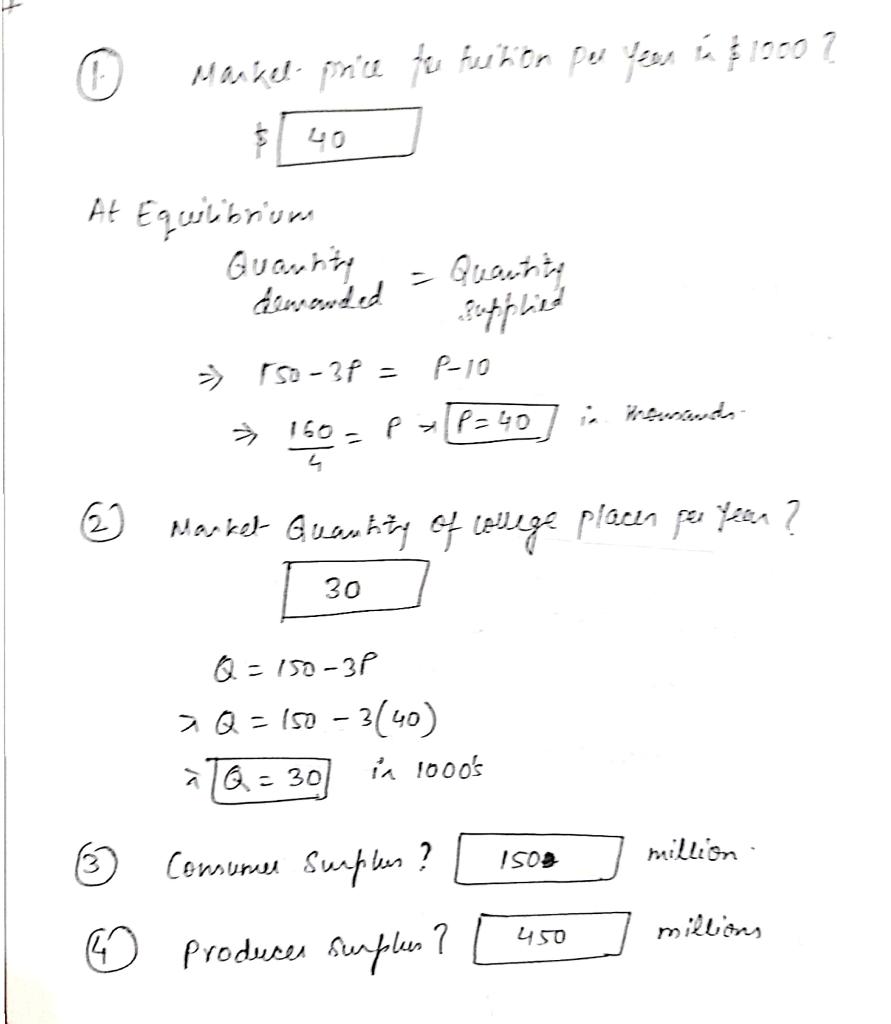 1. Market price for tuition per year in $1000?
$ 40
At Equilibrium
Quantity demanded = Quantity supplied
⇒ 150 - 3P = P-10
⇒ 160/4 = P ⇒ P = 40 in thousands.
2 Market Quantity of college places per year?
30
Q = 150 - 3P
⇒ Q = 150 - 3(40)
⇒ Q = 30 in 1000's
3 Consumer Surplus? 150 million.
4 Producer Surplus? 450 millions